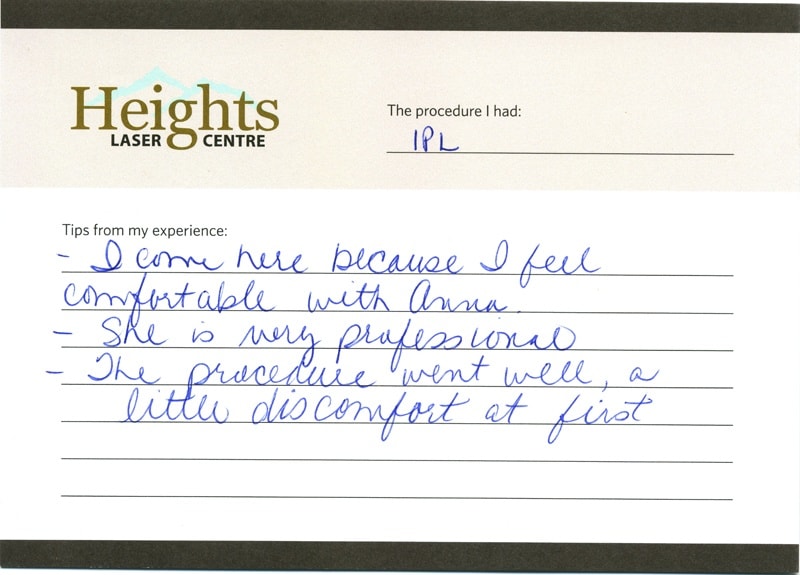 Heights
LASER CENTRE
The procedure I had:
IPL
Tips from my experience:
- I come here because I feel
comfortable with Anna.
- She is very professional
- The procedure went well, a
little discomfort at first